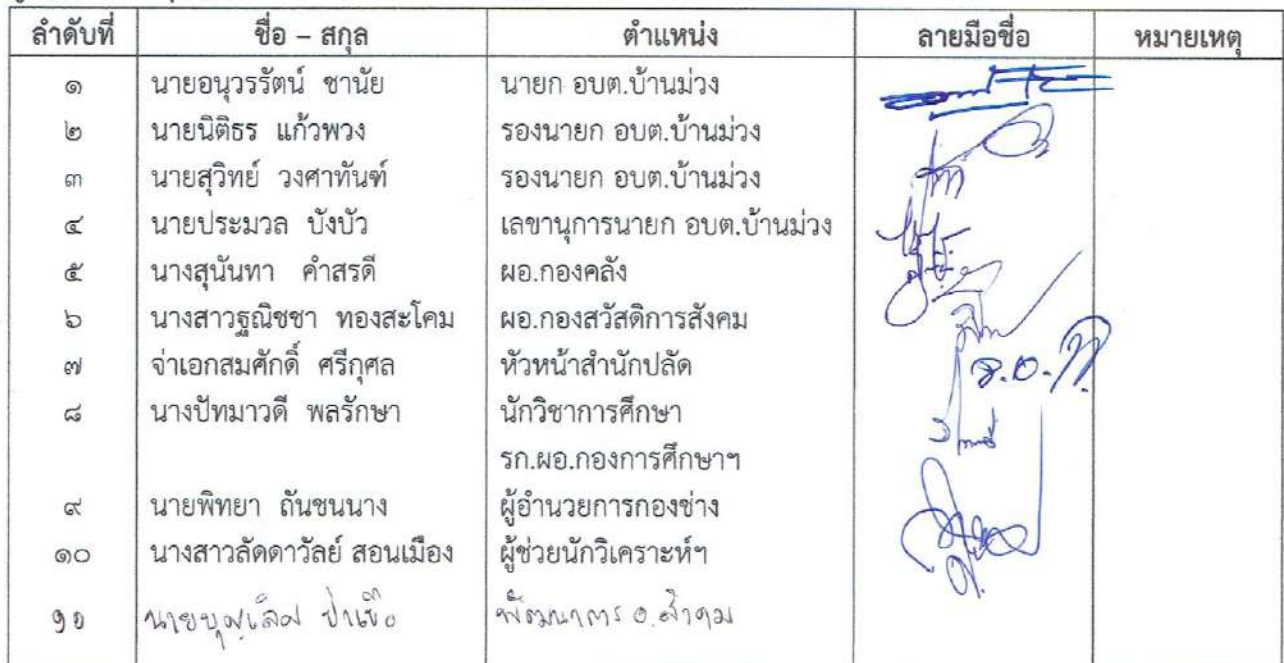 ลำดับที่ ชื่อ – สกุล ตำแหน่ง ลายมือชื่อ หมายเหตุ
๑ นายอนุวรรัตน์ ชานัย นายก อบต.บ้านม่วง
๒ นายนิติธร แก้วพวง รองนายก อบต.บ้านม่วง
๓ นายสุวิทย์ วงศาทันฑ์ รองนายก อบต.บ้านม่วง
๔ นายประมวล บังบัว เลขานุการนายก อบต.บ้านม่วง
๕ นางสุนันทา คำสรดี ผอ.กองคลัง
๖ นางสาวฐณิชชา ทองสะโคม ผอ.กองสวัสดิการสังคม
๗ จ่าเอกสมศักดิ์ ศรีกุศล หัวหน้าสำนักปลัด
๘ นางปัทมาวดี พลรักษา นักวิชาการศึกษา
รก.ผอ.กองการศึกษาฯ
๙ นายพิทยา ถันชนนาง ผู้อำนวยการกองช่าง
๑๐ นางสาวลัดดาวัลย์ สอนเมือง ผู้ช่วยนักวิเคราะห์ฯ
๑๑ พัฒนากร อ.